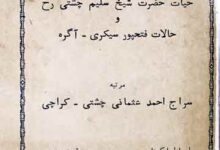 حیات حضرت شیخ سلیم چشتی رح
و
حالات فتحپور سیکری - آگرہ
مرتبہ
سراج احمد عثمانی چشتی - کراچی